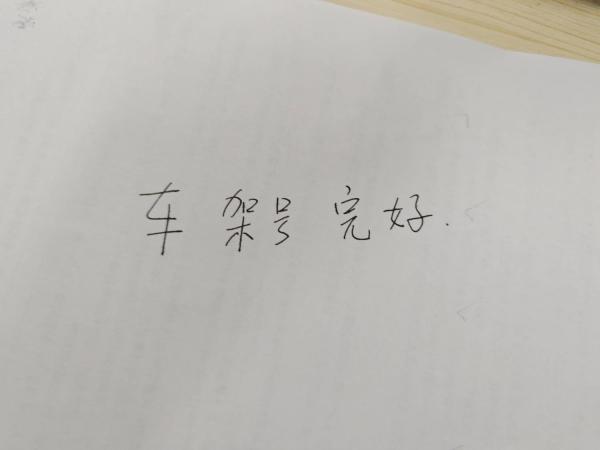 车架号完好.